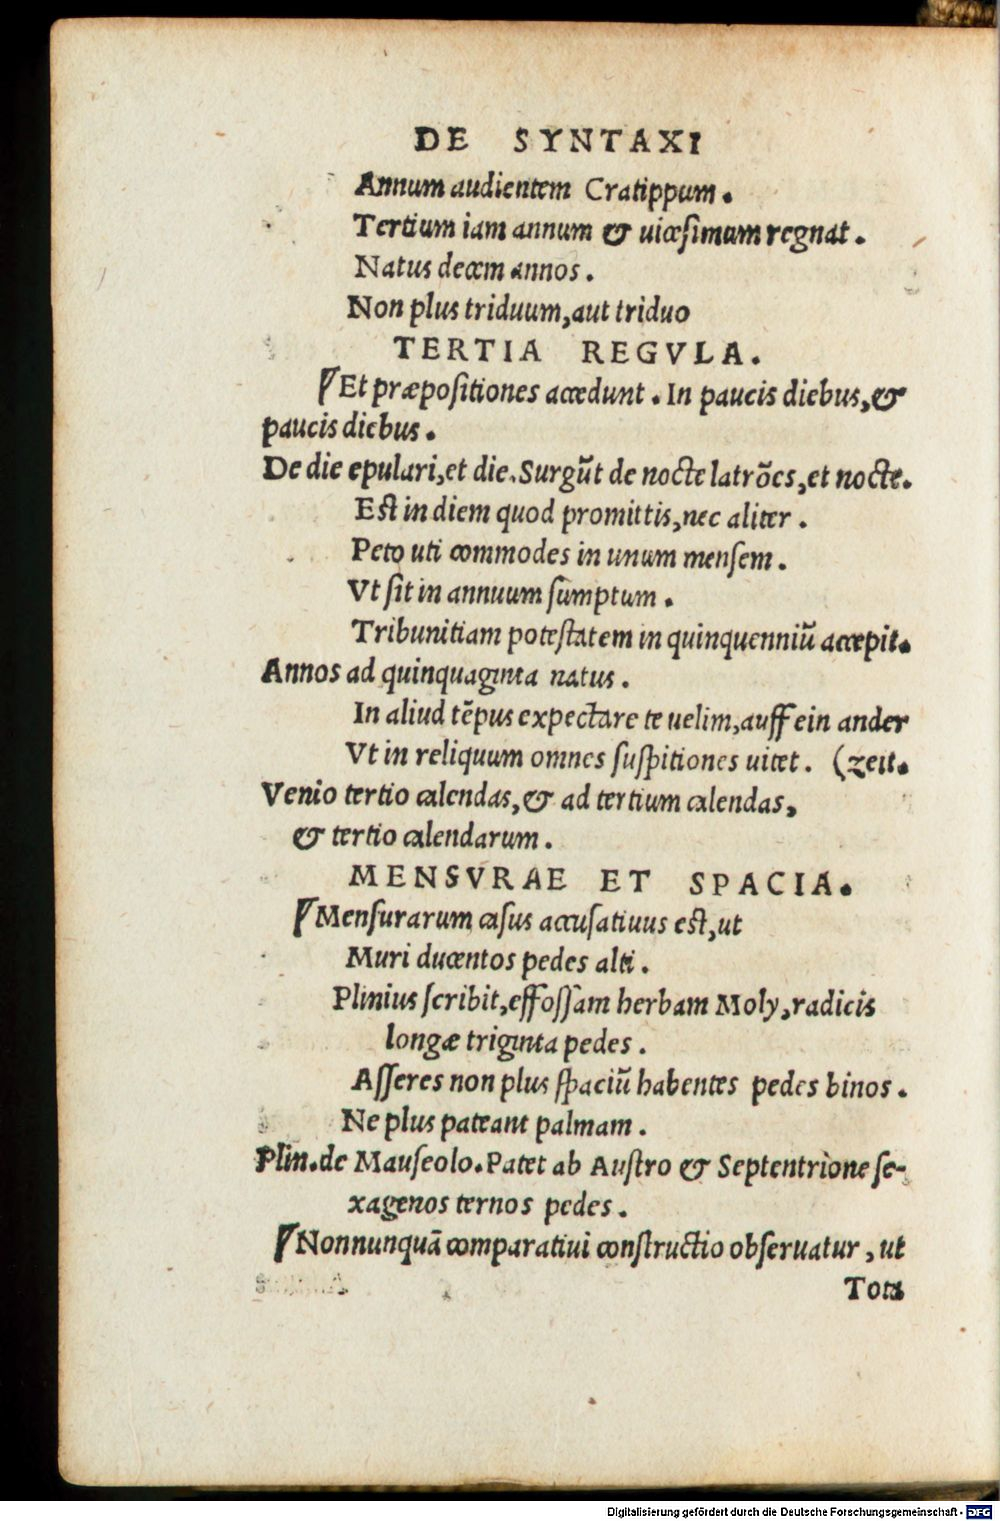 DE SYNTAXI
Annum audientem Cratippum.
Tertium iam annum & uicesimum regnat.
Natus decem annos.
Non plus triduum, aut triduo
TERTIA REGVLA.
Et præpositiones accedunt. In paucis diebus, &
paucis diebus.
De die epulari, et die. Surgūt de nocte latrões, et nocte.
Est in diem quod promittis, nec aliter.
Peto uti commodes in unum mensem.
Vt sit in annuum sumptum.
Tribunitiam potestatem in quinquenniū accepit.
Annos ad quinquaginta natus.
In aliud tēpus expectare te uelim, auff ein ander
Vt in reliquum omnes suspitiones uitet. (zeit.
Venio tertio calendas, & ad tertium calendas,
& tertio calendarum.
MENSVRAE ET SPACIA.
Mensurarum casus accusatiuus est, ut
Muri ducentos pedes alti.
Plinius scribit, effossam herbam Moly, radicis
longæ triginta pedes.
Asseres non plus spaciū habentes pedes binos.
Ne plus pateant palmam.
Plin. de Mauseolo. Patet ab Austro & Septentrione se-
xagenos ternos pedes.
Nonnunquā comparatiui constructio obseruatur, ut
Tota
Digitalisierung gefördert durch die Deutsche Forschungsgemeinschaft - DFG